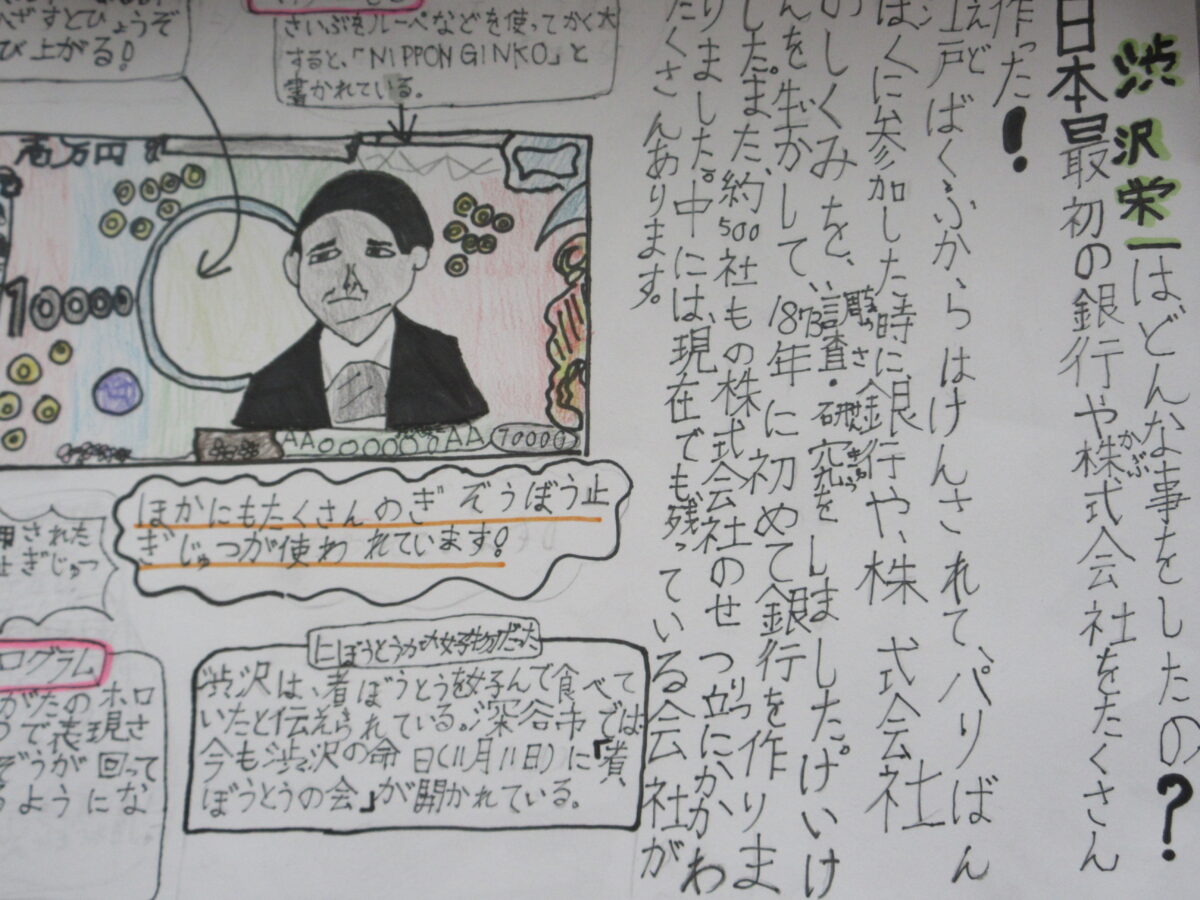 渋沢栄一はどんな事をしたの?
日本最初の銀行や株式会社をたくさん
作った!
江戸ばくふからはけんされて、パリばん
ばくに参加した時に銀行や、株式会社
のしくみを、調査・研究をしました。けいけ
んを生かして、1873年に初めて銀行を作りま
した。また、約500社もの株式会社のせつ立にかかわ
りました。中には、現在でも残っている会社が
たくさんあります。
ざすとひょうぞ
び上がる!
さいぶをルーペなどを使ってかく大
すると、「NIPPON GINKO」と
書かれている。
壱万円
10000
AA000000AA 10000
ほかにもたくさんのぎぞうぼう止
ぎじゅつが使われています!
用された
止ぎじゅつ
ログラム
がたのホロ
で表現さ
ぞうが回って
るようにな
にぼうとうが大好物だった
渋沢は、煮ぼうとうを好んで食べて
いたと伝えられている。深谷市では
今も渋沢の命日(11月11日)に「煮
ぼうとうの会」が開かれている。